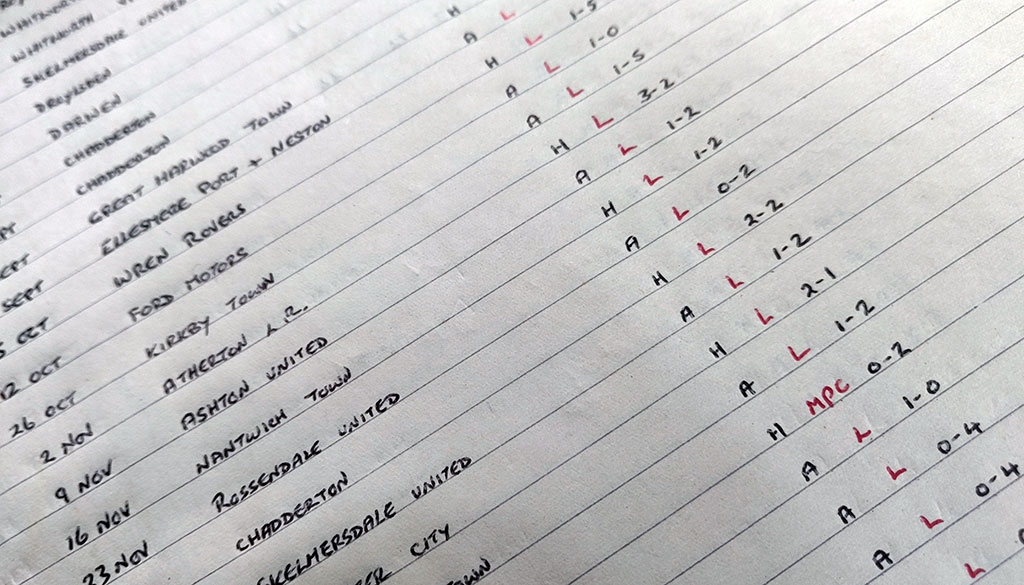 WHITWORTH
SKELMERSDALE UNITED
DROYLSDEN
DARWEN
CHADDERTON
CHADDERTON
SEPT GREAT HARWOOD TOWN H
SEPT ELLESMERE PORT + NESTON A L
5 OCT WREN ROVERS H L 1-5
12 OCT FORD MOTORS A L 1-0
26 OCT KIRKBY TOWN A L 1-5
2 NOV ATHERTON L.R. H L 3-2
9 NOV ASHTON UNITED A L 1-2
16 NOV NANTWICH TOWN H L 1-2
23 NOV ROSSENDALE UNITED A L 0-2
CHADDERTON H L 2-2
SKELMERSDALE UNITED A L 1-2
CITY H L 2-1
TOWN A L 1-2
H MPC 0-2
A L 1-0
A L 0-4
A L 0-4
L